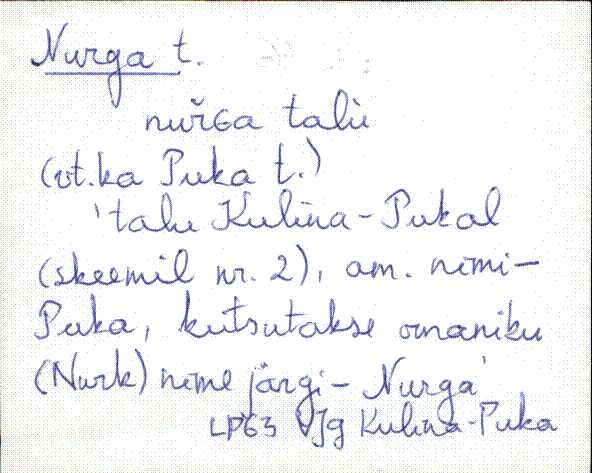 Nurga t.
nuřɢa talù
(vt. ka Puka t.)
'talu Kulina-Pukal
(skeemil nr. 2), am. nimi-
Puka, kutsutakse omaniku
(Nurk) nime järgi- Nurga'
LP63 VJg Kulina-Puka